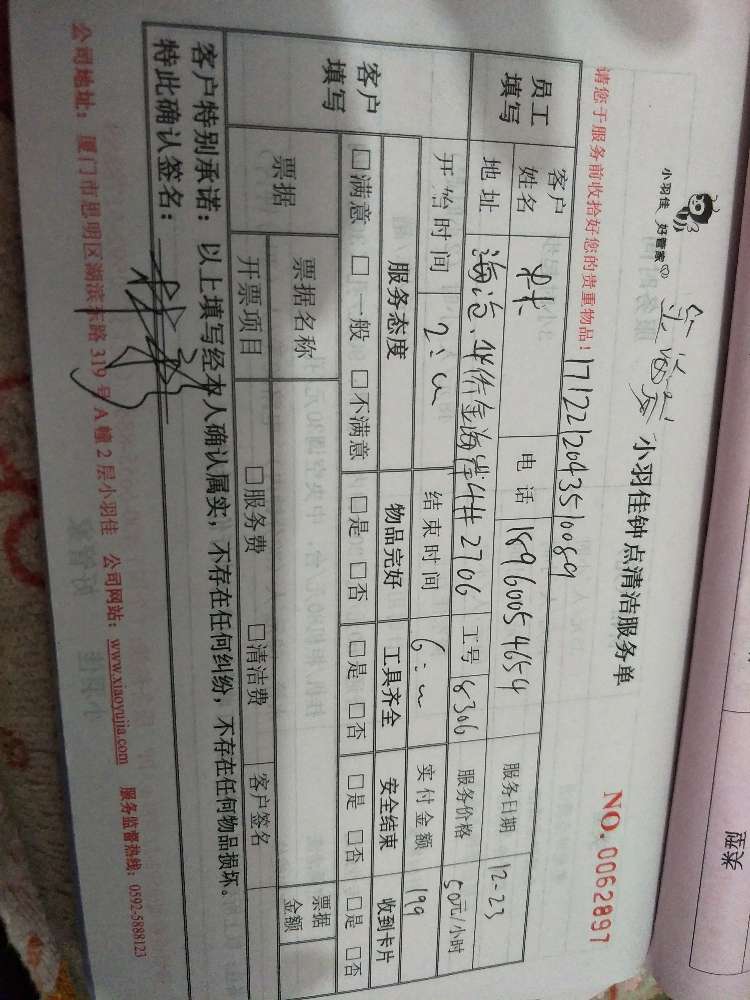 小羽佳 好管家
小羽佳钟点清洁服务单
NO.0062897
请您于服务前收拾好您的贵重物品!
1712212043510089
员工填写
客户姓名 林 电话 18960054654 服务日期 12-23
地址 海沧 华侨金海岸4#2706 工号 8306 服务价格 50元/小时
开始时间 2: 结束时间 6: 实付金额 199
客户填写
服务态度 物品完好 工具齐全 安全结束 收到卡片
□满意 □一般 □不满意 □是 □否 □是 □否 □是 □否 □是 □否
票据 票据名称 票据金额
开票项目 □服务费 □清洁费 客户签名
客户特别承诺:以上填写经本人确认属实,不存在任何纠纷,不存在任何物品损坏。
特此确认签名:
公司地址:厦门市思明区湖滨东路319号A幢2层小羽佳 公司网站:www.xiaoyujia.com 服务监督热线:0592-5888123